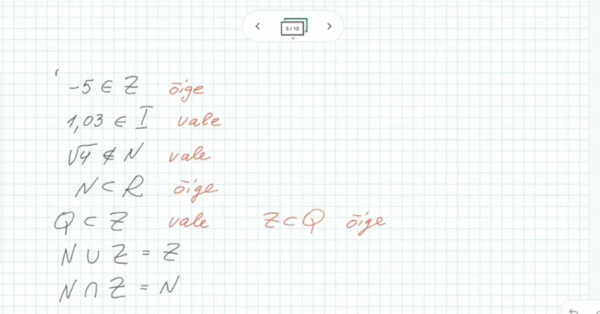 3 / 10
-5 ∈ Z õige
1,03 ∈ I vale
√4 ∉ N vale
N ⊂ R õige
Q ⊂ Z vale Z ⊂ Q õige
N ∪ Z = Z
N ∩ Z = N